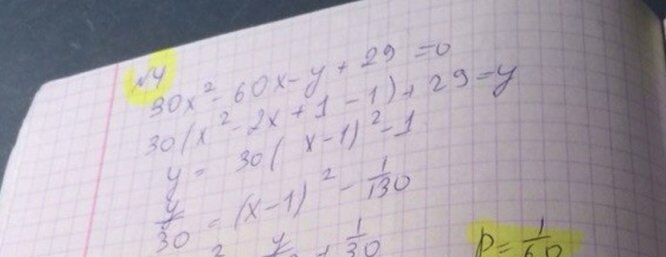 №4
30x² - 60x - y + 29 = 0
30(x² - 2x + 1 - 1) + 29 = y
y = 30(x-1)² - 1
y/30 = (x-1)² - 1/130
² y + 1/30
p = 1/60